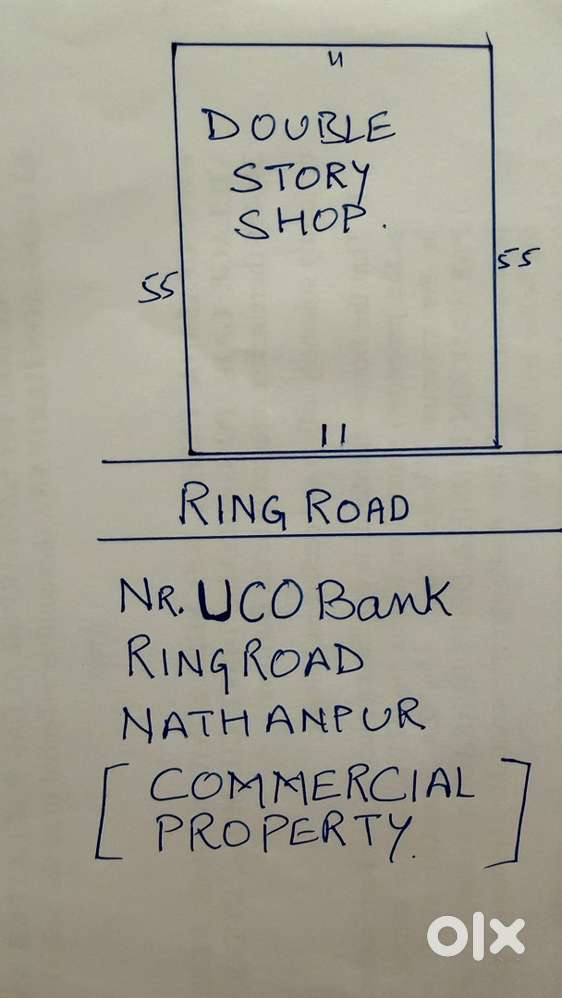 11
DOUBLE
STORY
SHOP.
55
55
11
RING ROAD
NR. UCO Bank
RING ROAD
NATHANPUR
[COMMERCIAL
PROPERTY.]
olx